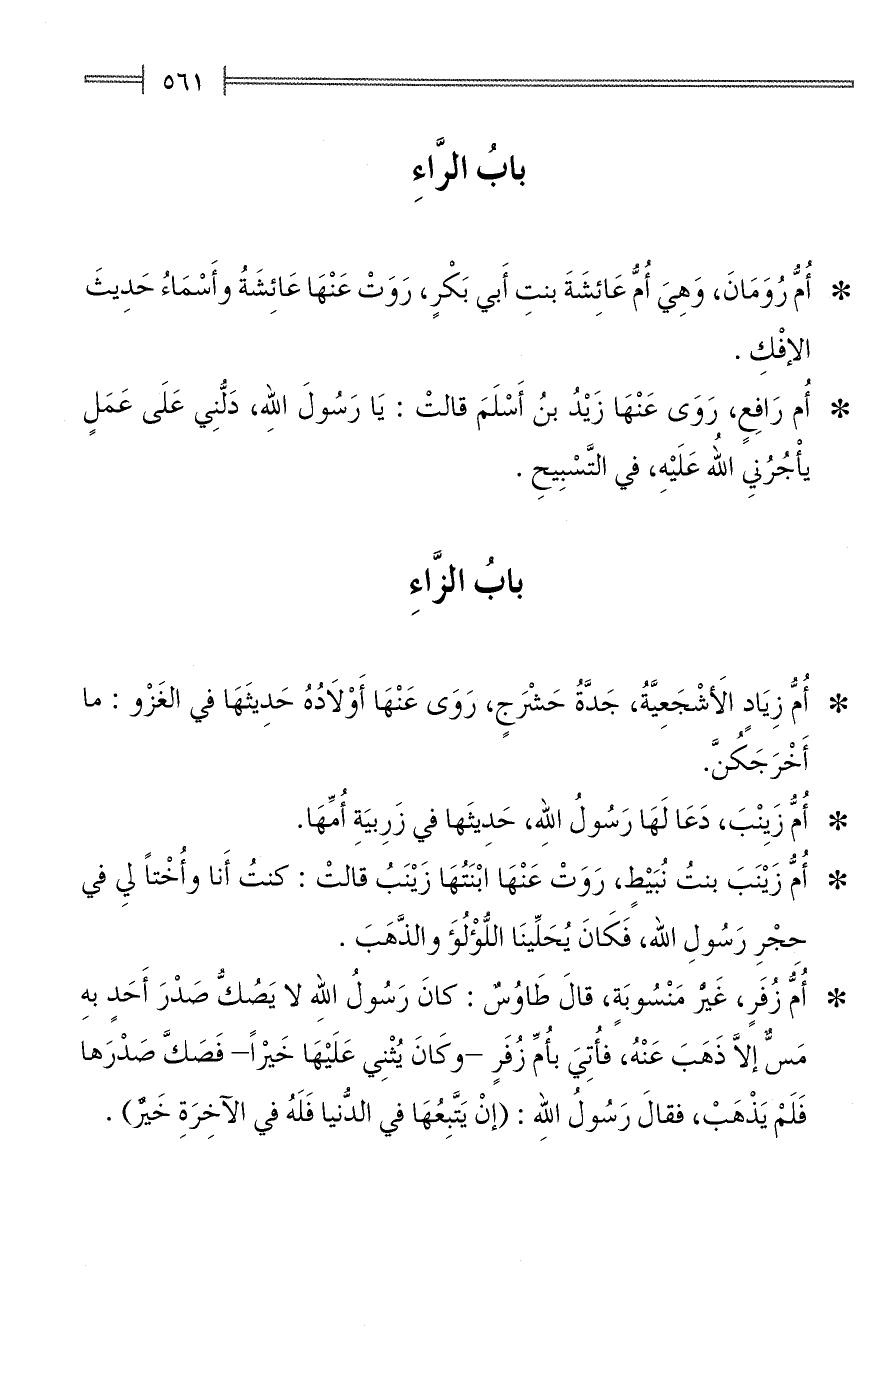 ٥٦١
بابُ الرَّاءِ
* أُمُّ رُوَمَانَ، وَهِيَ أُمُّ عَائِشَةَ بنتِ أَبي بَكْرٍ، رَوَتْ عَنْهَا عَائِشَةُ وأَسْمَاءُ حَدِيثَ
الإفْكِ .
* أُم رَافِعٍ، رَوَى عَنْهَا زَيْدُ بنُ أَسْلَمَ قالتْ : يَا رَسُولَ اللهِ، دَلُّنِي عَلَى عَمَلٍ
يأْجُرُنِي اللهُ عَلَيْهِ، في التَّسْبِيحِ .
بابُ الزَّاءِ
* أُمُّ زِيَادٍ الَأشْجَعِيَّةُ، جَدَّةُ حَشْرَجٍ، رَوَى عَنْهَا أَوْلَادُهُ حَدِيثَهَا في الغَزْو : ما
أَخْرَجَكُنَّ.
* أُمُّ زَيِنْبَ، دَعَا لَهَا رَسُولُ اللهِ، حَدِيثَها في زَرِبيَةِ أُمِّهَا.
* أُمُّ زَيْنَبَ بنتُ نُبَيْطٍ، رَوَتْ عَنْهَا ابْنَتُهَا زَيْنَبُ قالتْ : كنتُ أَنا وأُخْتاً لِي في
حِجْرِ رَسُولِ اللهِ، فَكَانَ يُحَلِّينَا اللُّؤْلُؤَ والذَّهَبَ .
* أُمُّ زُفَرٍ، غَيرُْ مَنْسُوبَةٍ، قالَ طَاوُسٌ : كانَ رَسُولُ اللهِ لا يَصُكُّ صَدْرَ أَحَدٍ بهِ
مَسٌّ إلاَّ ذَهَبَ عَنْهُ، فأُتِيَ بأُمِّ زُفَرٍ –وكَانَ يُثْنِي عَلَيْهَا خَيْراً– فَصَكَّ صَدْرَها
فَلَمْ يَذْهَبْ، فقالَ رَسُولُ اللهِ : (إنْ يَتَّبِعُهَا في الدُّنيا فَلَهُ في الآخِرَةِ خَيرٌْ) .